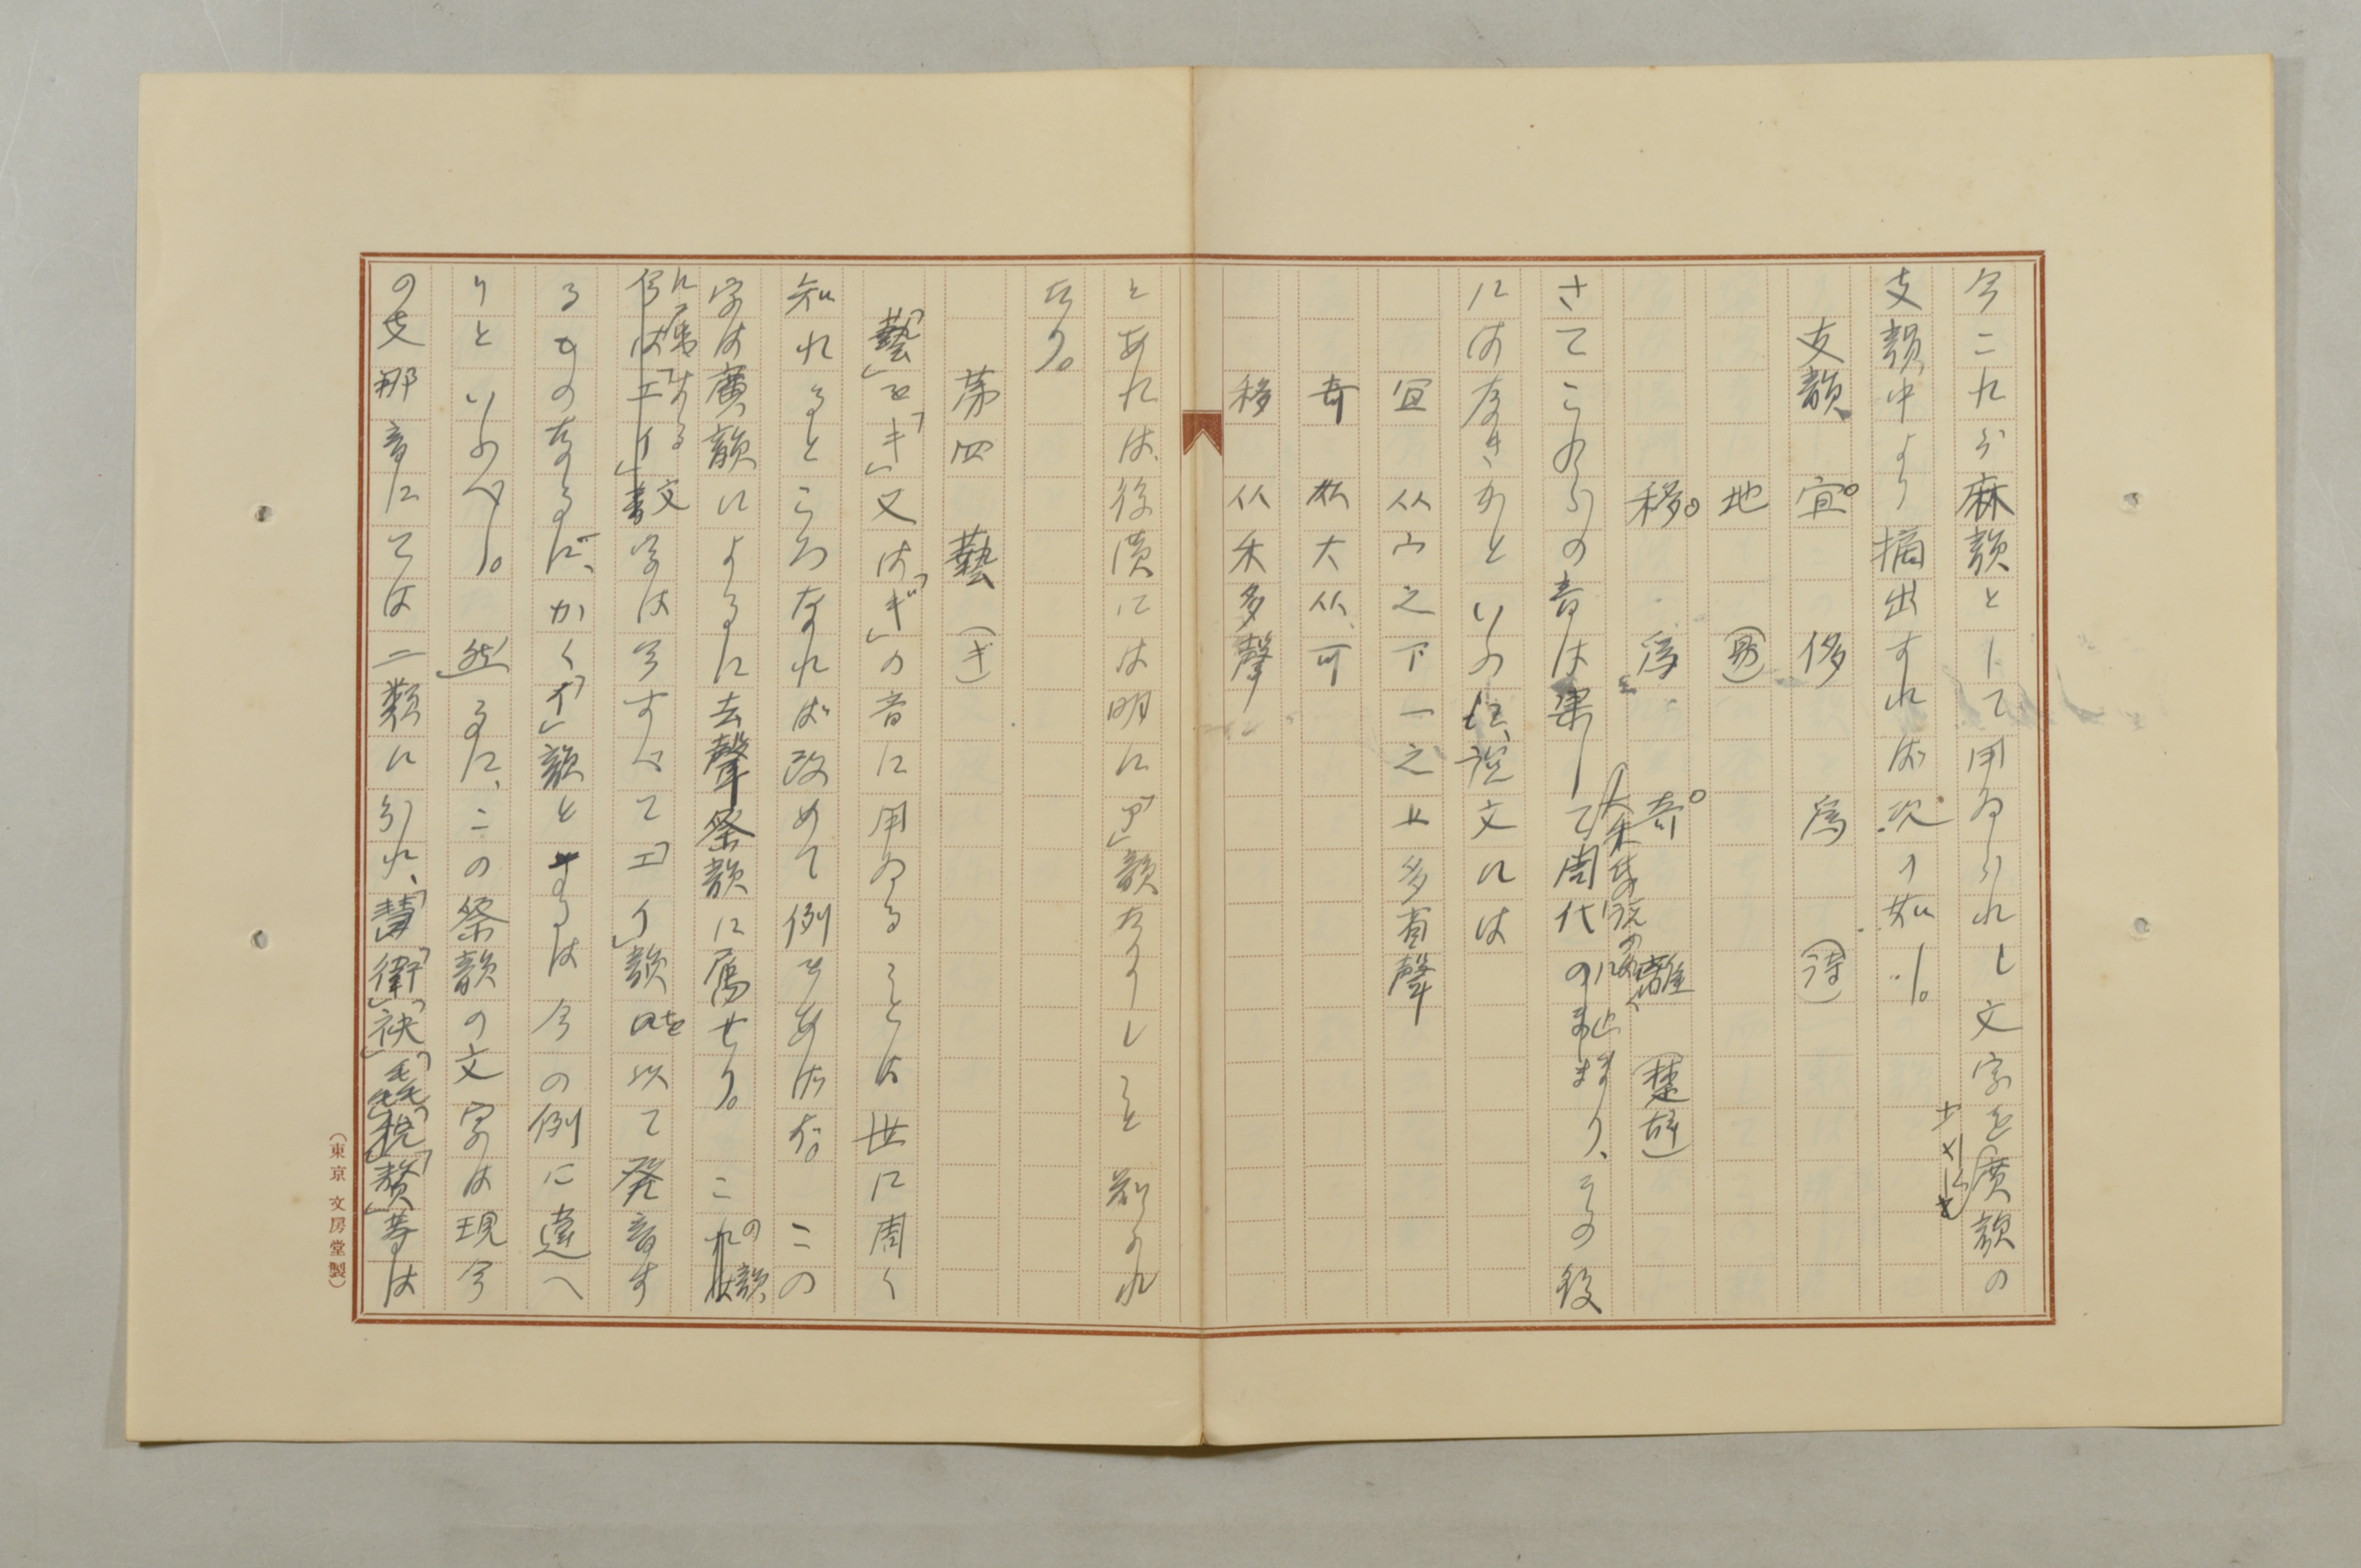 今これが麻韻として用ゐられし文字を廣韻の
支韻中より摘出すれば次の如し。
支韻 宜 侈 爲 (詩)
地 (易)
移 爲 奇 離 (楚辞)
さてこれらの音は果して周代のまゝなり、その後
にはなきかといふに、説文には
宜 从宀之下一之上多省聲
奇 从大从可
移 从禾多聲
とあれば、後漢には明に「ア」韻なりしこと知られ
たり。
第四 藝 (ギ)
「藝」を「キ」又は「ギ」の音に用ゐることは世に周く
知れるところなれば改めて例をあげず。この
字は廣韻によるに去聲祭韻に属せり。この韻
に属する文字は今すべて「エイ」韻を以て発音す
るものなるに、かく「イ」韻とするは今の例に違へ
りといふべし。然るに、この祭韻の文字は現今
の支那音にては二類に分れ、「彗」「衛」「袂」「毳」「税」「贅」等は
(東京文房堂製)